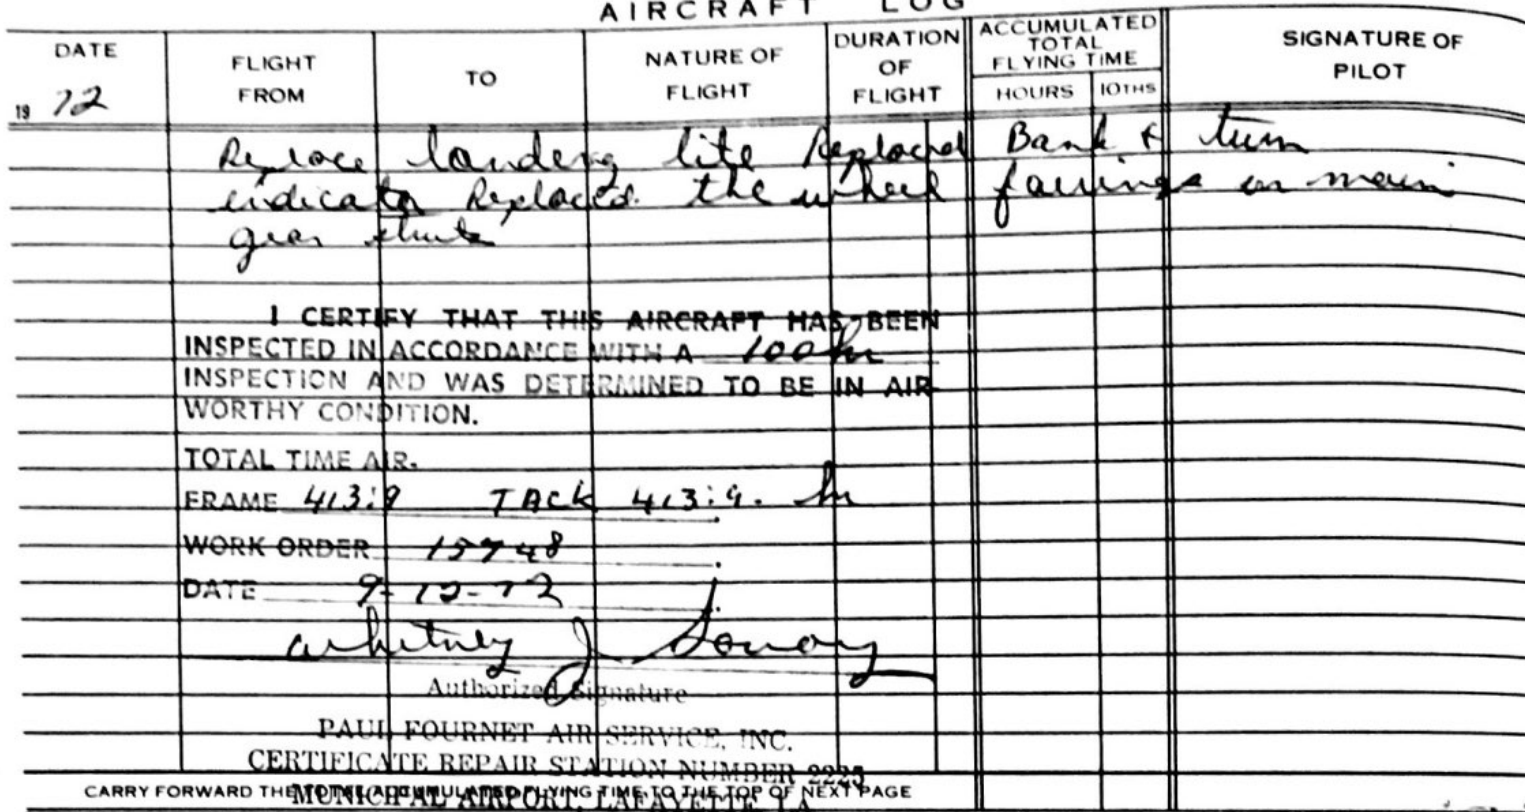 AIRCRAFT LOG
DATE
19 72
FLIGHT FROM
TO
NATURE OF FLIGHT
DURATION OF FLIGHT
ACCUMULATED TOTAL FLYING TIME
HOURS 10THS
SIGNATURE OF PILOT
Replace landing lite Replaced Bank & turn
indicator Replaced the wheel fairings on main
gear struts
I CERTIFY THAT THIS AIRCRAFT HAS BEEN
INSPECTED IN ACCORDANCE WITH A 100 hr
INSPECTION AND WAS DETERMINED TO BE IN AIR-
WORTHY CONDITION.
TOTAL TIME AIR-
FRAME 413:9 TACK 413:9. hr
WORK ORDER 15748
DATE 9-12-72
Whitney J
Authorized Signature
PAUL FOURNET AIR SERVICE, INC.
CERTIFICATE REPAIR STATION NUMBER 2225
MUNICIPAL AIRPORT, LAFAYETTE, LA
CARRY FORWARD THE TOTAL ACCUMULATED FLYING TIME TO THE TOP OF NEXT PAGE